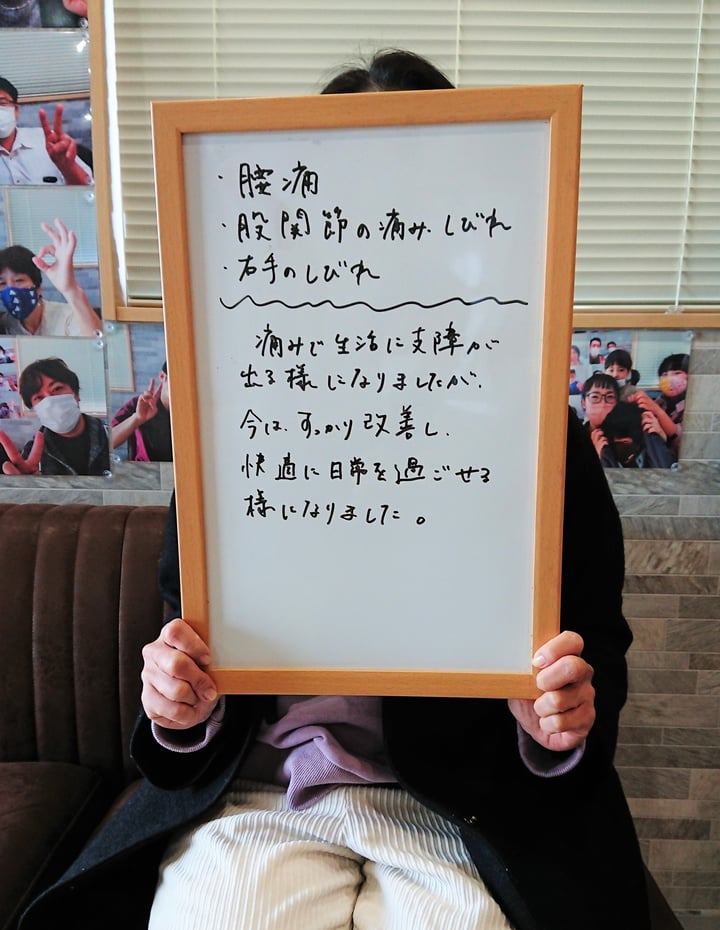 ・腰痛
・股関節の痛み・しびれ
・右手のしびれ
痛みで生活に支障が
出る様になりましたが、
今は、すっかり改善し、
快適に日常を過ごせる
様になりました。